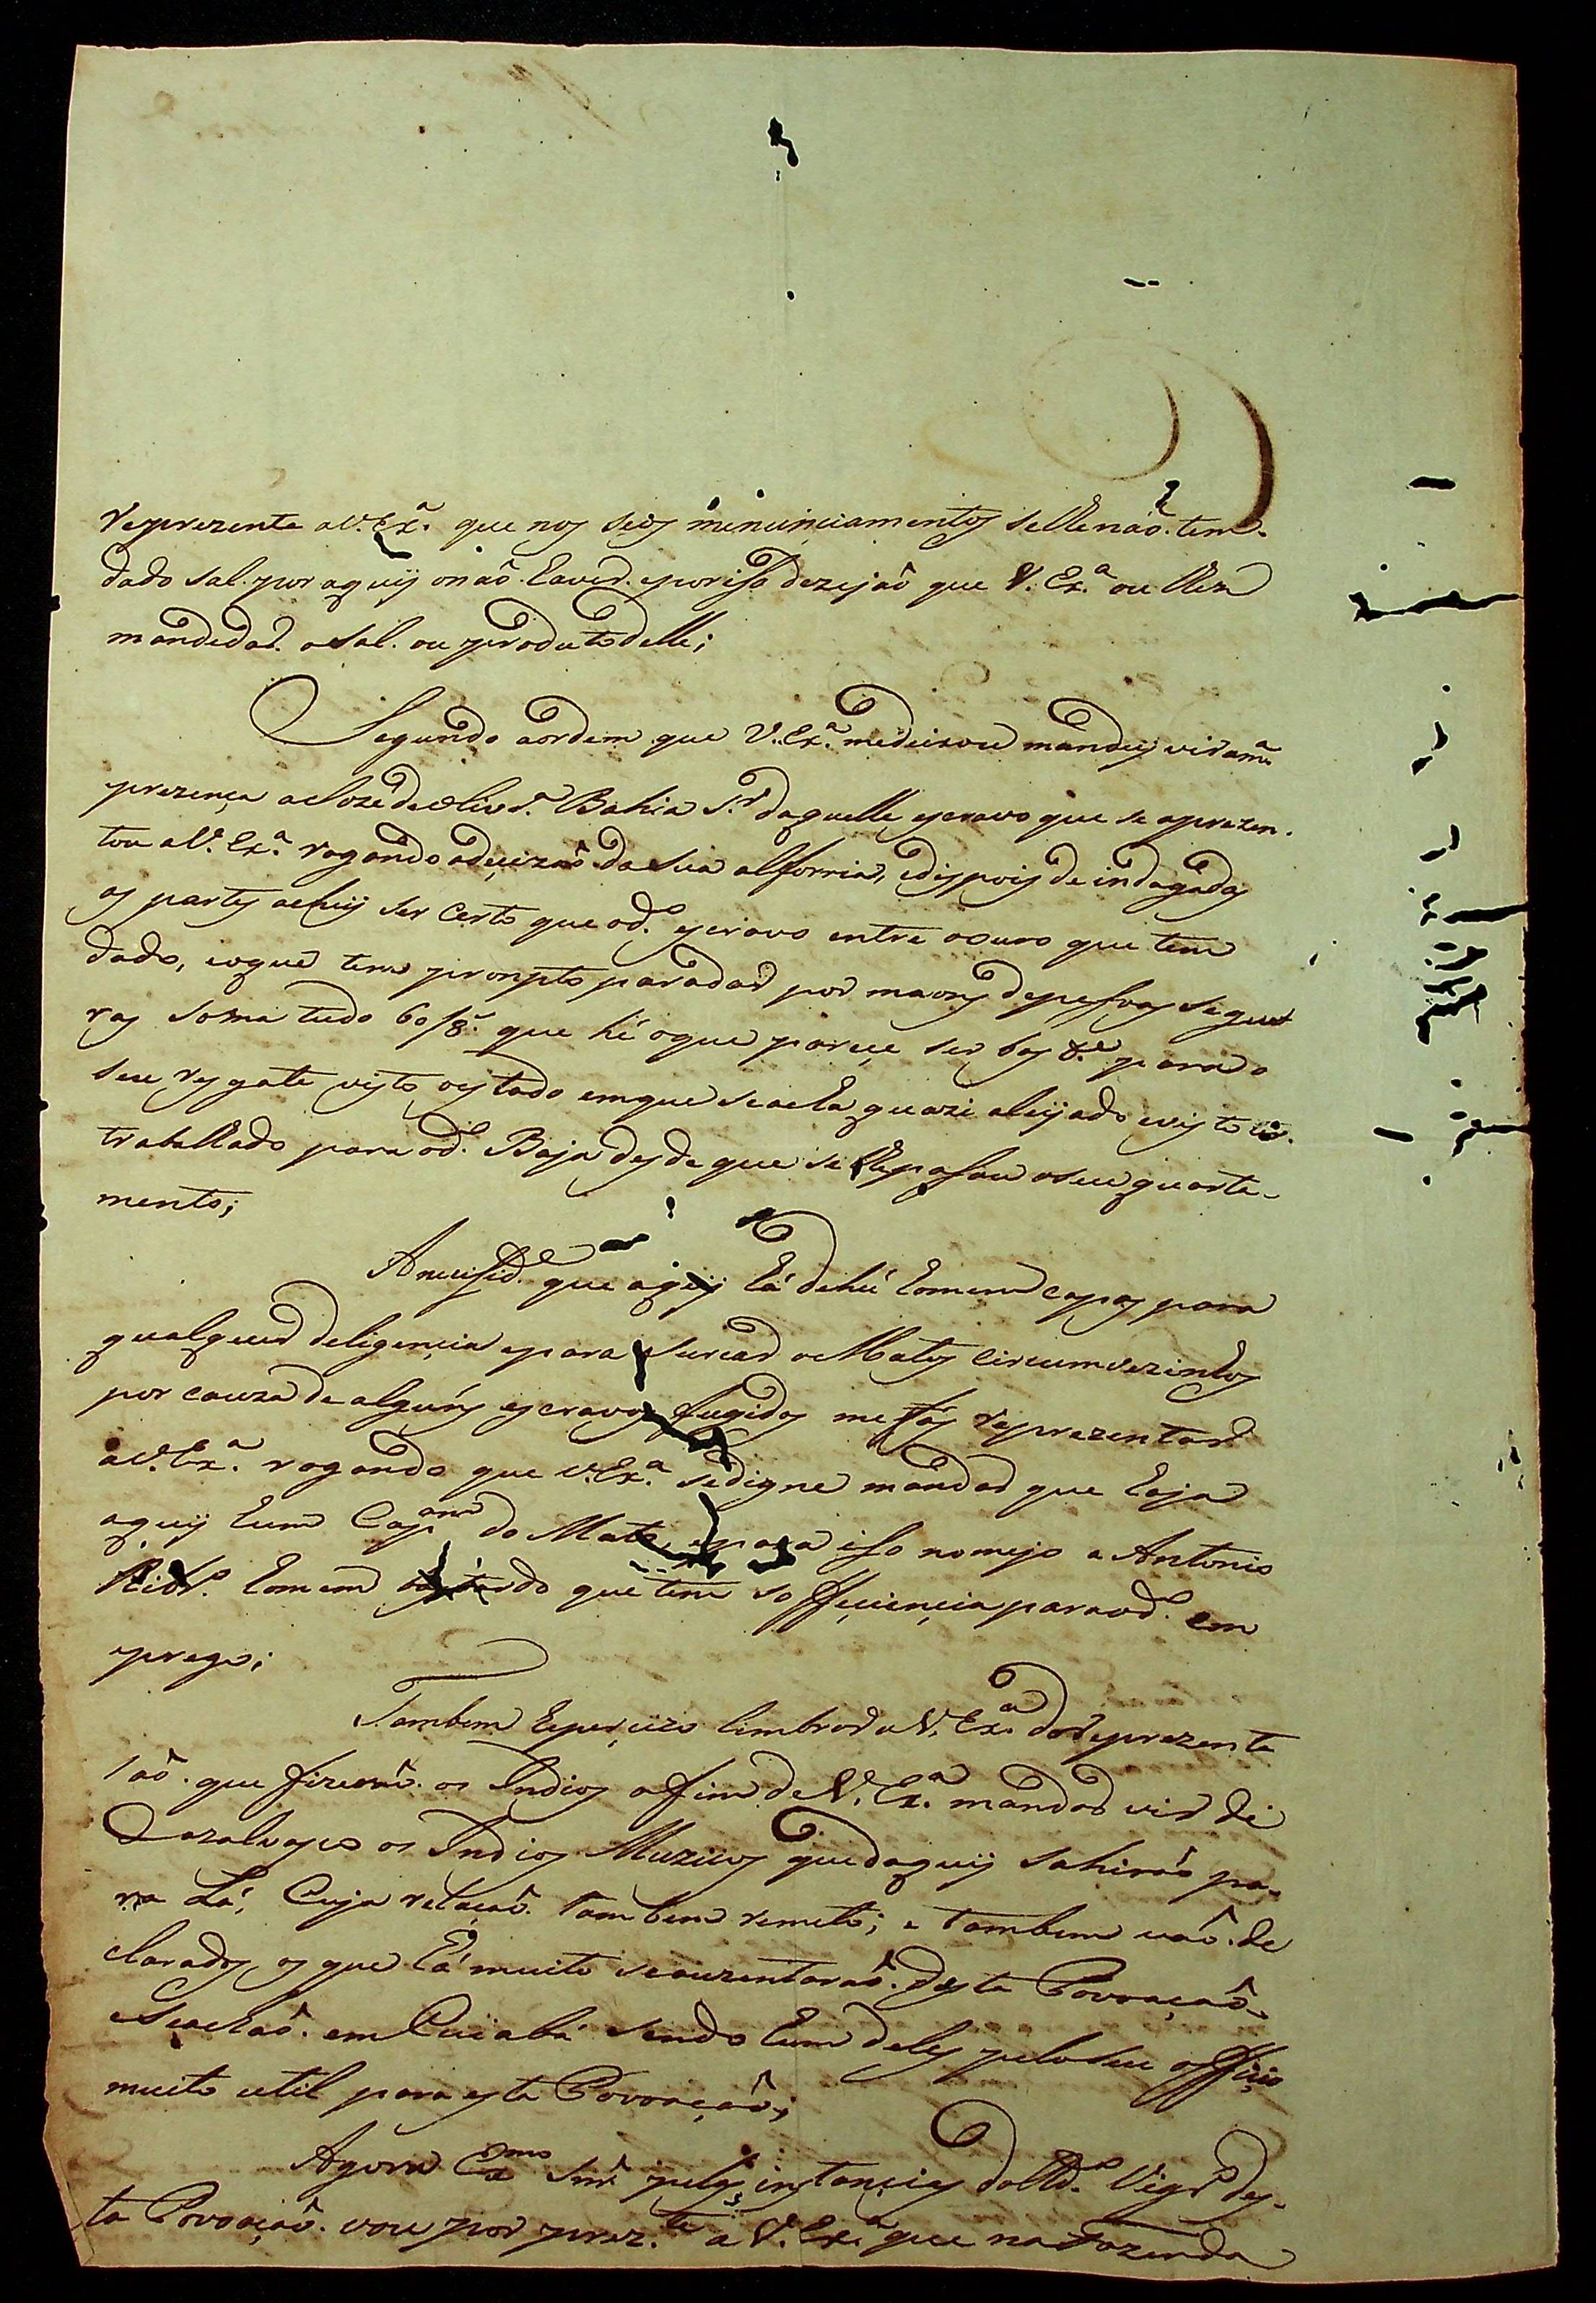 reprezente a V. Exª. que nos seos minunciamentos selle naõ. tem.
dado sal. por aquy onaõ. haver. eporiso dezejaõ que V. Exª. ou lhez
mandedar. osal. ou produto delle;
Segundo aordem que V. Exª. medeixou mandey vir amª
prezença a Joze de Olivrª. Bahia Sr. daquelle escravo que se aprezen.
tou a V. Exª. rogando adecizaõ da sua alforria, edispois de indagadas
as partes achey ser certo que od.º escravo entre oouro que tem
dado, eoque tem prompto paradar por maons depesoas segu
ras soma tudo 60/8ª. que hé oque parece ser bas.te para o
seu resgate visto oestado emque seacha quazi aleijado evisto
trabalhado para od.º Baja desde que se lhepasou oseu quarta-
mento;
Anecesid.e que aquy há dehú homem capas para
qualquer deligencia epara sercar os Matos circumvezinhos
por cauza de alguns escravos fugidos me fás reprezentar
a V. Exª. rogando que V. Exª. sedigne mandar que haja
aquy hum Cap.am do Mato, epara iso nomejo a Antonio
Ribr.º homem bastardo que tem sofficiencia paraod.º em
prego;
Tambem heperçizo limbrar a V. Exª. da Reprezenta
saõ. que fizeraõ. os Indios afim de V. Exª. mandar vir de
Cazalvasco os Indios Muzicos quedaquy sahiraõ pa.
ra Lá, Cuja relaçaõ. tambem remeto; e tambem vaõ. de
clarados os que há muito seauzentaraõ. desta Povoaçaõ.
eseachaõ. em Cuiabá sendo hum deles peloseu officio
muito util para esta Povoaçaõ;
Agora Exmo Snr. pelas instancias do Rd.º Vigr.º des-
ta Povoaçaõ. vou por prez.te a V. Exª. que na Fazenda